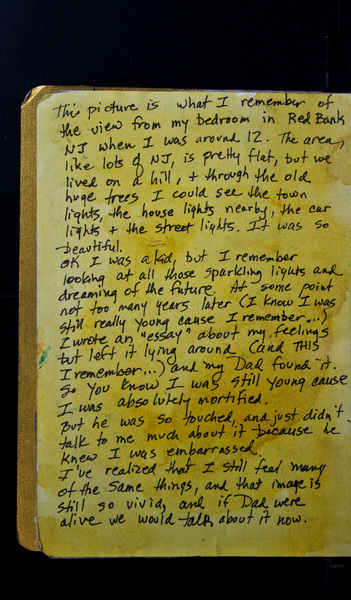 This picture is what I remember of
the view from my bedroom in Red Bank
NJ when I was around 12. The area,
like lots of NJ, is pretty flat, but we
lived on a hill, + through the old
huge trees I could see the town
lights, the house lights nearby, the car
lights + the street lights. It was so
beautiful.
OK I was a kid, but I remember
looking at all those sparkling lights and
dreaming of the future. At some point
not too many years later (I know I was
still really young cause I remember...)
I wrote an "essay" about my feelings
but left it lying around (and THIS
I remember...) and my Dad found it.
So you know I was still young cause
I was absolutely mortified.
But he was so touched, and just didn't
talk to me much about it because he
knew I was embarrassed.
I've realized that I still feel many
of the same things, and that image is
still so vivid, and if Dad were
alive we would talk about it now.